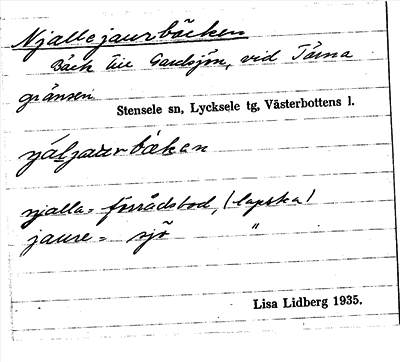 Njallejaurbäcken
Bäck till Gardsjön, vid Tärna
gränsen
Stensele sn, Lycksele tg, Västerbottens l.
njalla = förrådsbod, (lapska)
jaure = sjö "
Lisa Lidberg 1935.